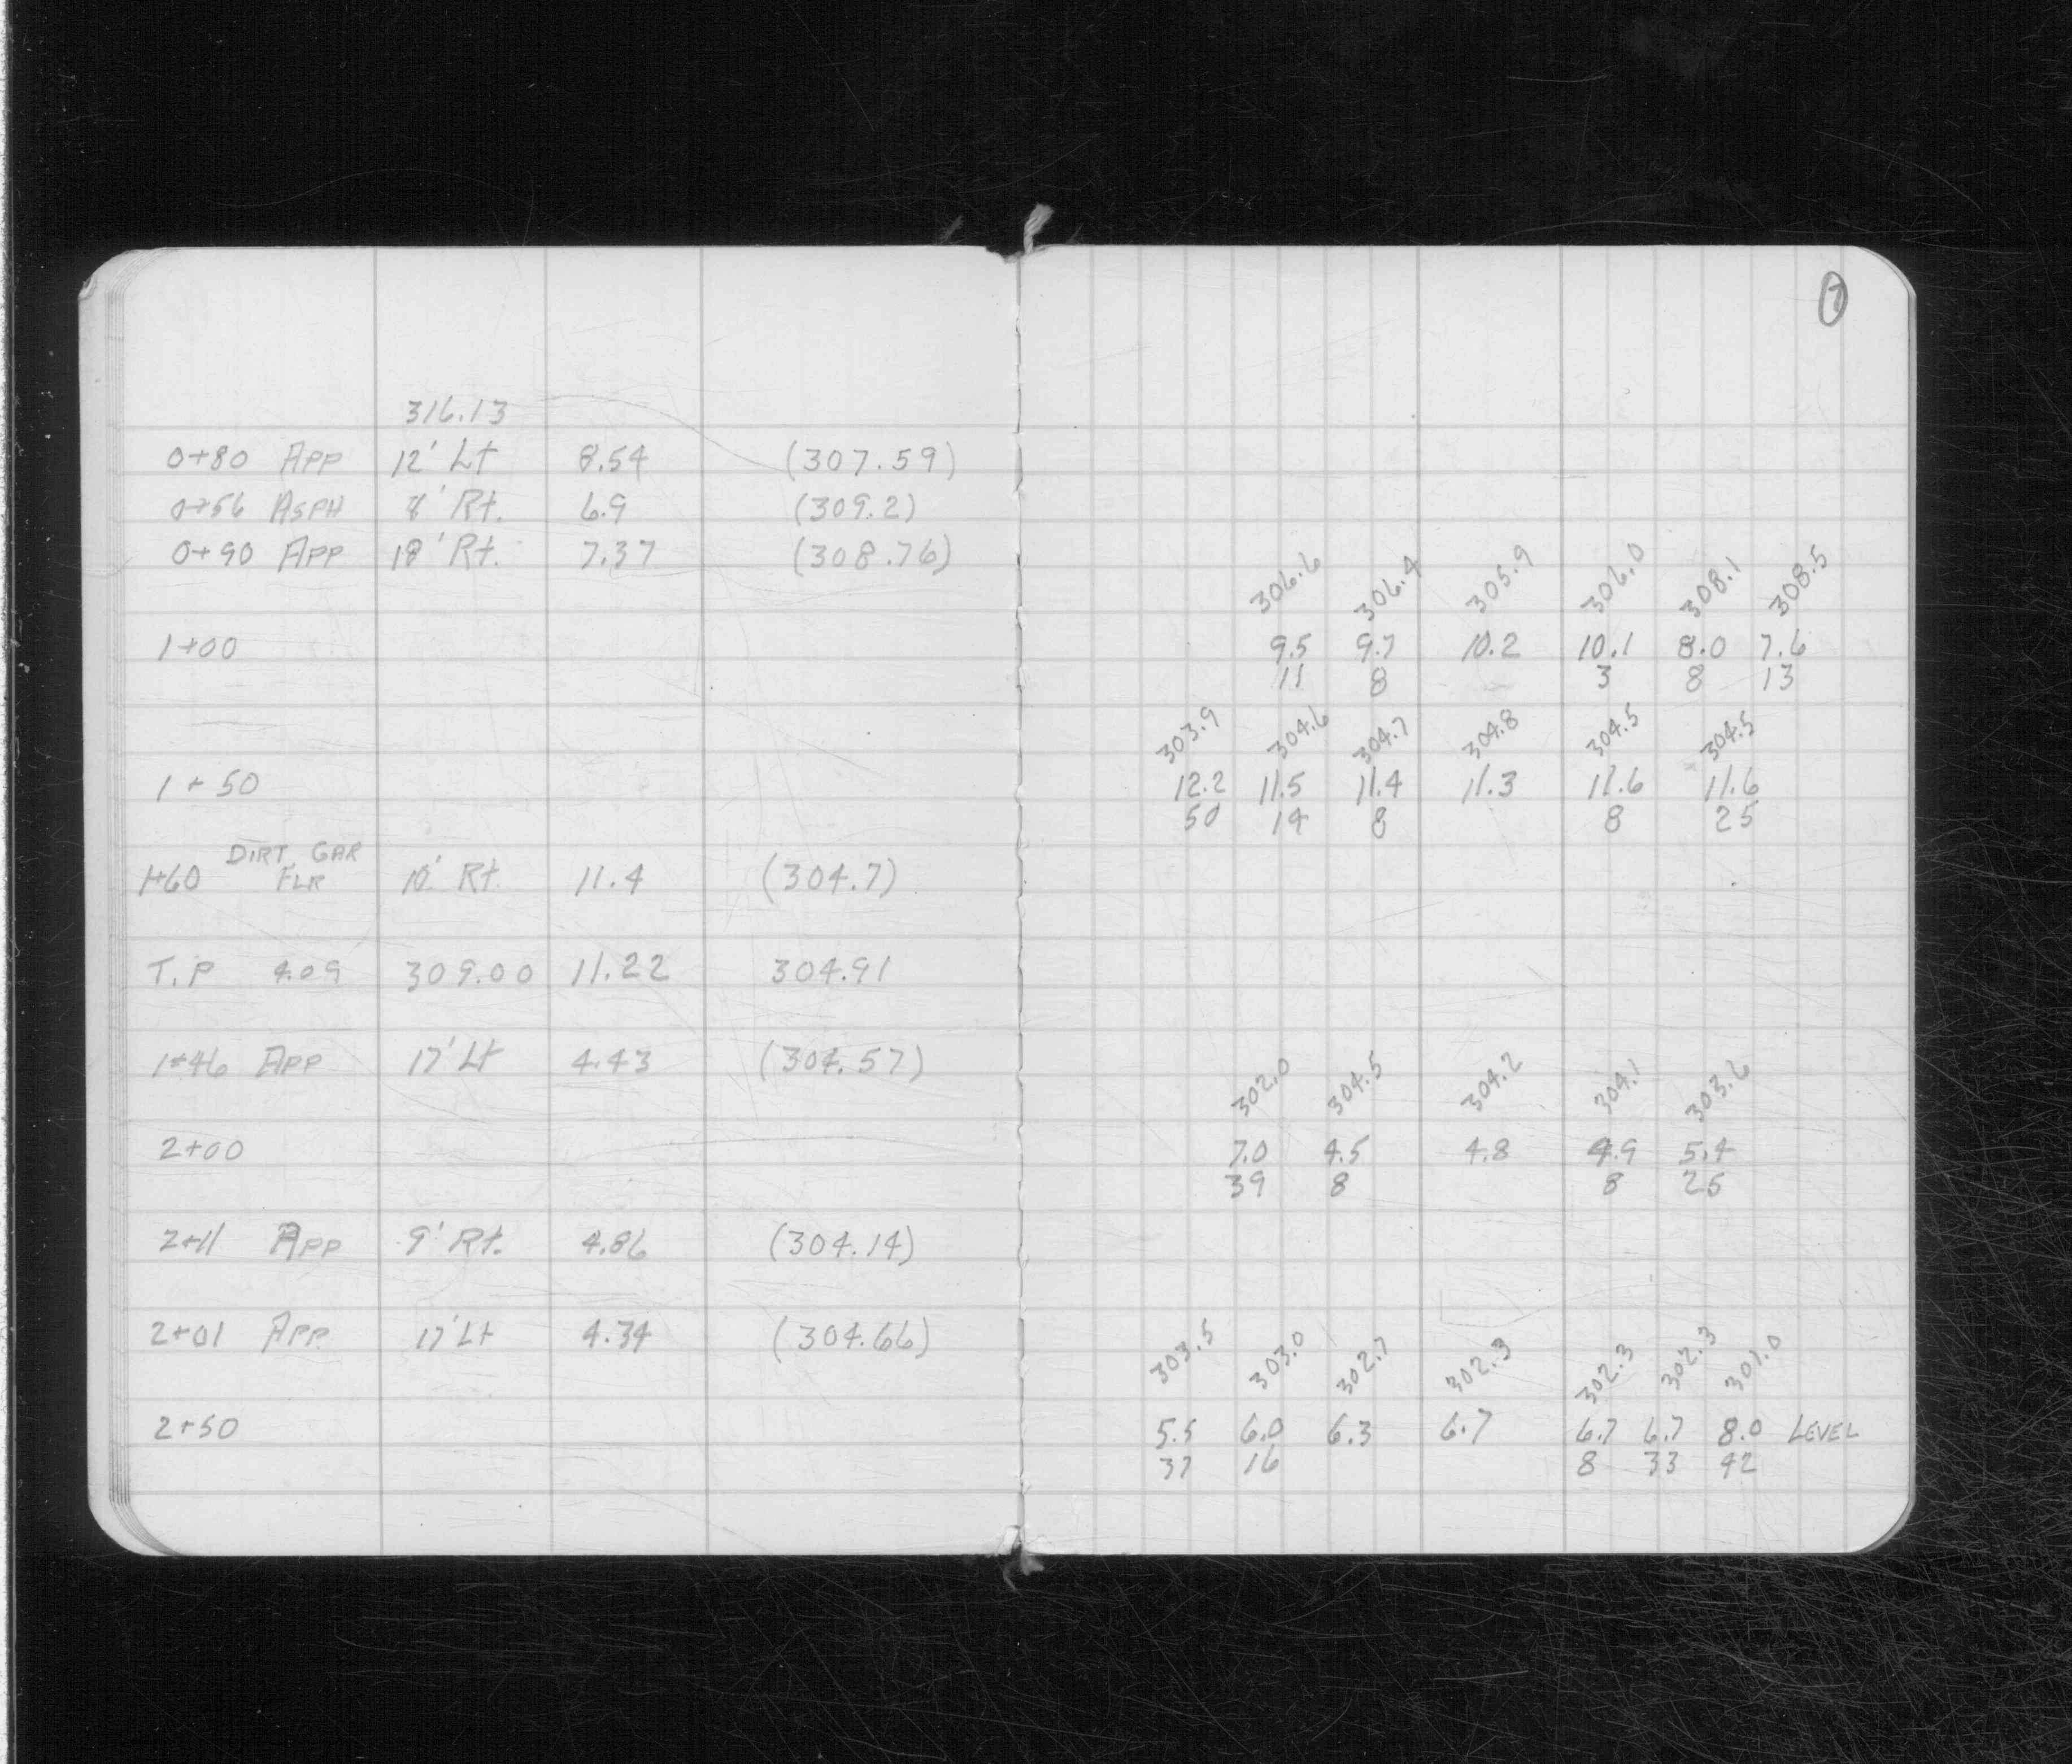 316.13
0+80 App 12' Lt 8.54 (307.59)
0+56 ASPH 8' Rt. 6.9 (309.2)
0+90 App 18' Rt. 7.37 (308.76)
1+00
1+50
DIRT GAR
1+60 FLR 10' Rt. 11.4 (304.7)
T.P 4.09 309.00 11.22 304.91
1+46 App 17' Lt 4.43 (304.57)
2+00
2+11 App 9' Rt. 4.86 (304.14)
2+01 App 17' Lt 4.34 (304.66)
2+50
7
306.6 306.4 305.9 306.0 308.1 308.5
9.5 9.7 10.2 10.1 8.0 7.6
11 8 3 8 13
303.9 304.6 304.7 304.8 304.5 304.5
12.2 11.5 11.4 11.3 11.6 11.6
50 14 8 8 25
302.0 304.5 304.2 304.1 303.6
7.0 4.5 4.8 4.9 5.4
39 8 8 25
303.5 303.0 302.7 302.3 302.3 302.3 301.0
5.5 6.0 6.3 6.7 6.7 6.7 8.0 LEVEL
37 16 8 33 42